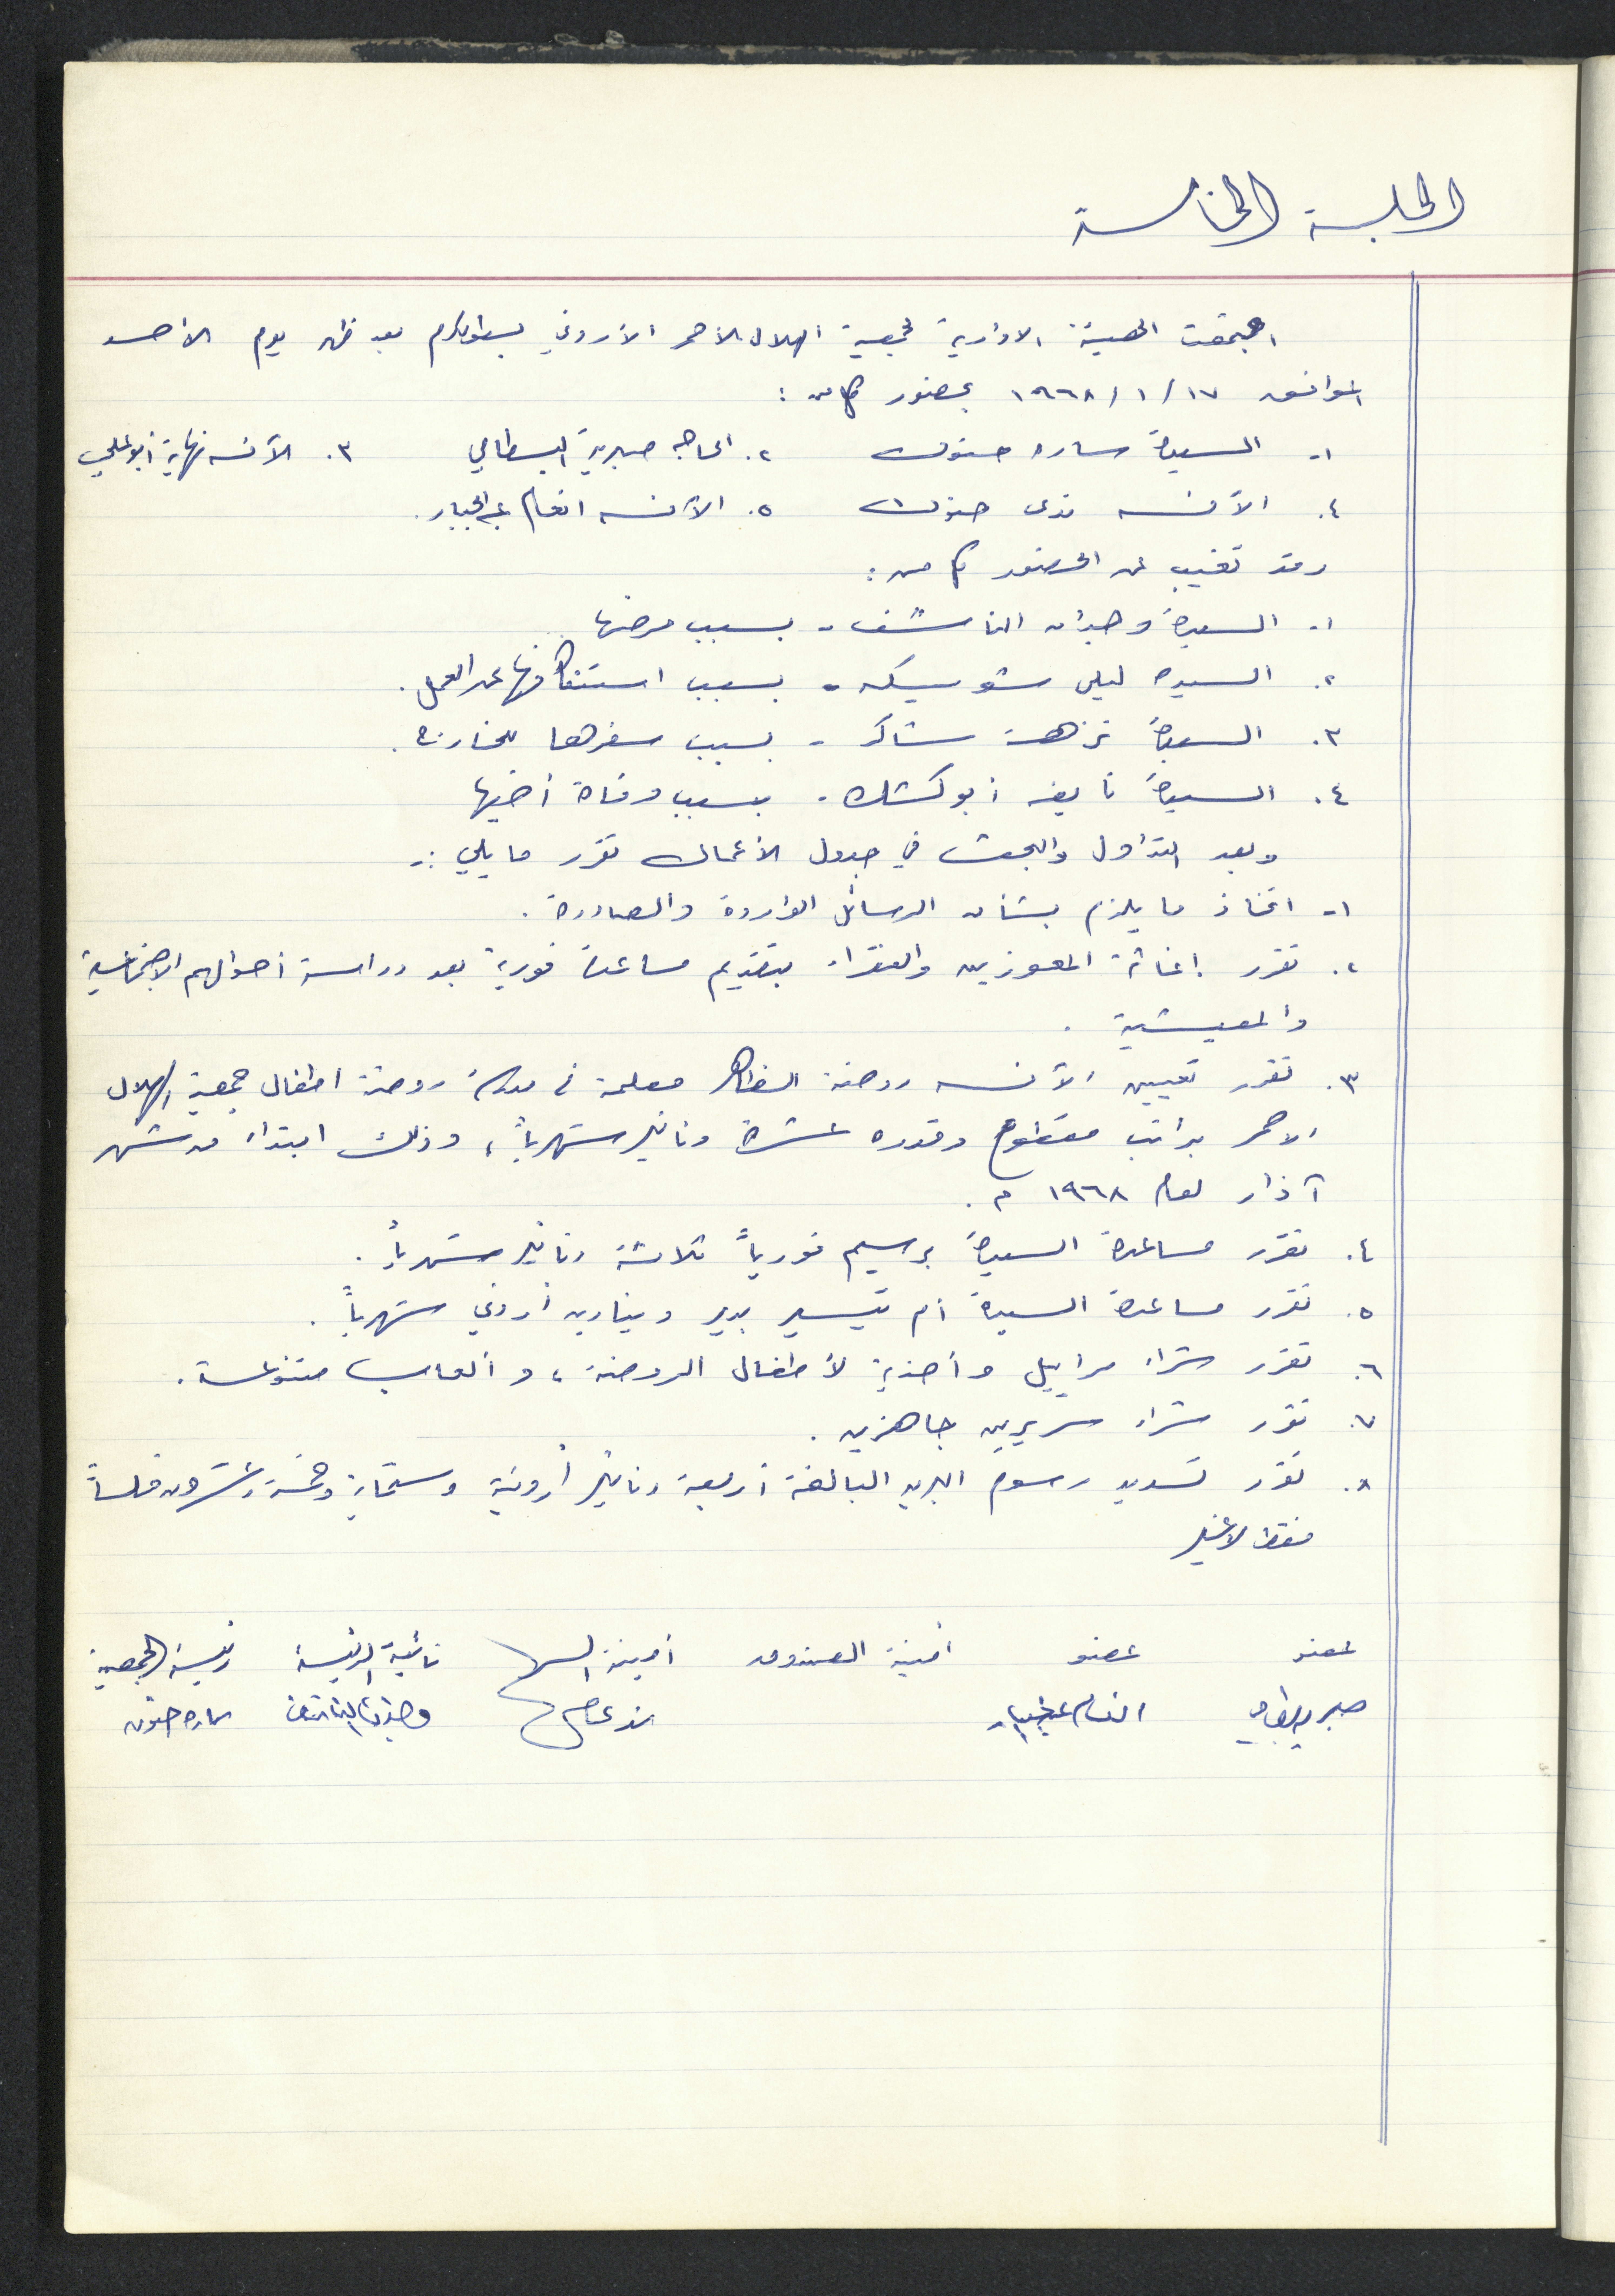 الجلسة الخامسة
اجتمعت الهيئة الادارية لجمعية الهلال الاحمر الأردني بطولكرم بعد ظهر يوم الأحد
الموافق ١٧ / ١ / ١٩٦٨ بحضور كل من :
١- السيدة ساره حنون ٢. الحاجه صبرية البسطامي ٣. الآنسه نهاية ابو علي
٤. الآنسه ندى حنون ٥. الآنسه انعام عبد الجبار .
وقد تغيب عن الحضور كل من :
١- السيدة وجدان الناشف - بسبب مرضها
٢. السيدة ليلى شويكه - بسبب استنكافها عن العمل .
٣. السيدة نزهت شاكر - بسبب سفرها للخارج .
٤. السيدة نايفه ابو كشك - بسبب وفاة أخيها
وبعد التداول والبحث في جدول الأعمال تقرر ما يلي :-
١- اتخاذ ما يلزم بشأن الرسائل الواردة والصادرة .
٢. تقرر إغاثة المعوزين والفقراء بتقديم مساعدة فورية بعد دراسة أحوالهم الاجتماعية
والمعيشية .
٣. تقرر تعيين الآنسه روضة الظاهر معلمة في مدرسة روضة اطفال جمعية الهلال
الاحمر براتب مقطوع وقدره عشرة دنانير شهرياً ، وذلك ابتداء من شهر
آذار لعام ١٩٦٨ م .
٤. تقرر مساعدة السيدة برسيم فورياً ثلاثة دنانير شهرياً .
٥. تقرر مساعدة السيدة أم تيسير بدير دينارين أردني شهرياً .
٦. تقرر شراء مراييل وأحذية لأطفال الروضة ، وألعاب متنوعة .
٧. تقرر شراء سريرين جاهزين .
٨. تقرر تسديد رسوم البريد البالغة أربعة دنانير أردنية وستماية وخمسة وعشرون فلساً
فقط لاغير
عضو عضو أمينة الصندوق أمينة السر نائبة الرئيسة رئيسة الجمعية
انعام عبد الجبار وجدان الناشف ساره حنون